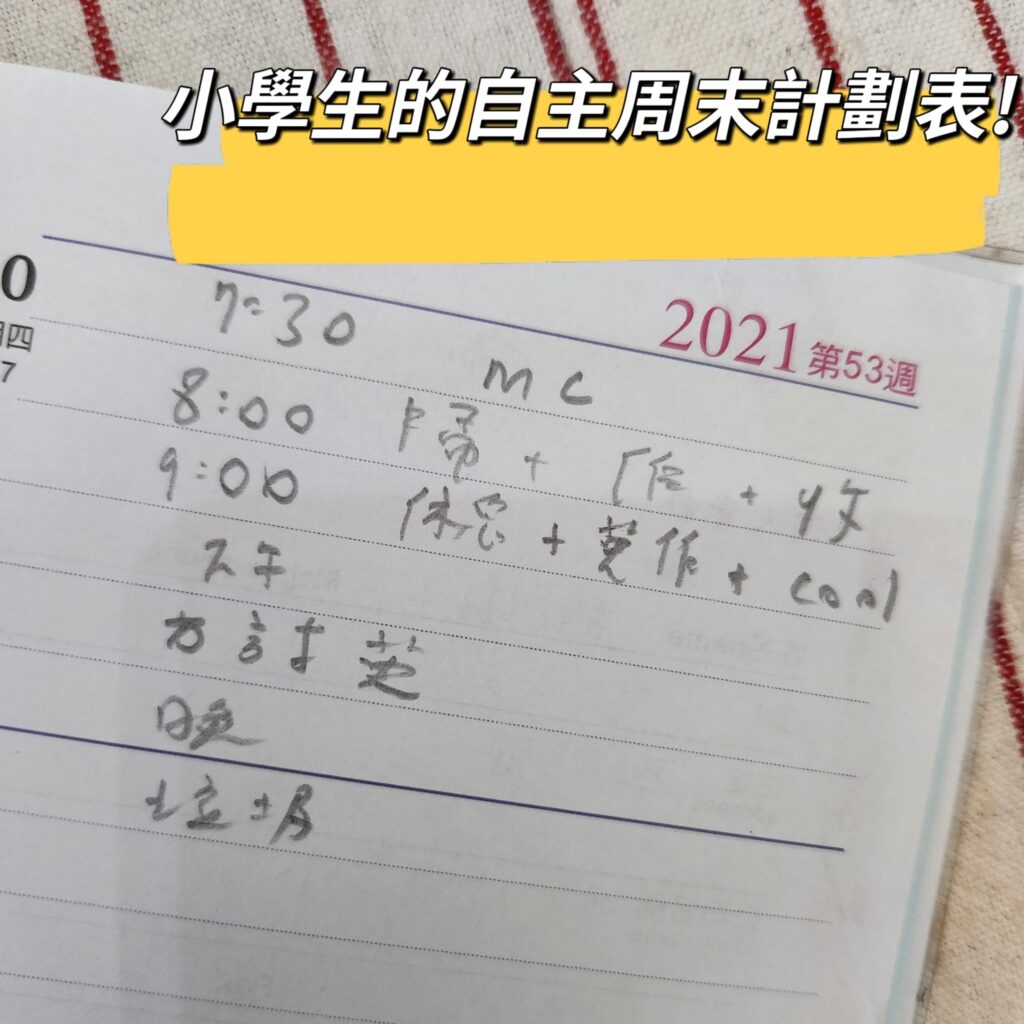 小學生的自主周末計劃表!
0
四
7
2021第53週
7:30
MC
8:00 掃 + + 收
9:00 休息 + 英作 + cool
下午
方 討 英
晚
垃圾